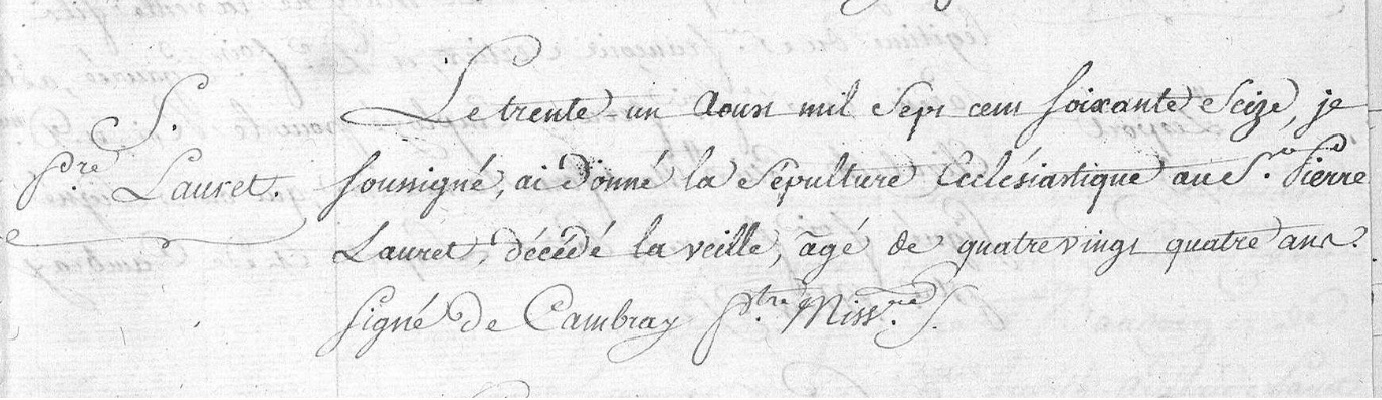 S.
P.re Lauret.
Le trente un Aoust mil Sept cent soixante Seize, je
soussigné, ai donné la Sépulture Ecclésiastique au S.r Pierre
Lauret, décédé la veille, âgé de quatrevingt quatre ans.
signé de Cambray P.tre Miss.re